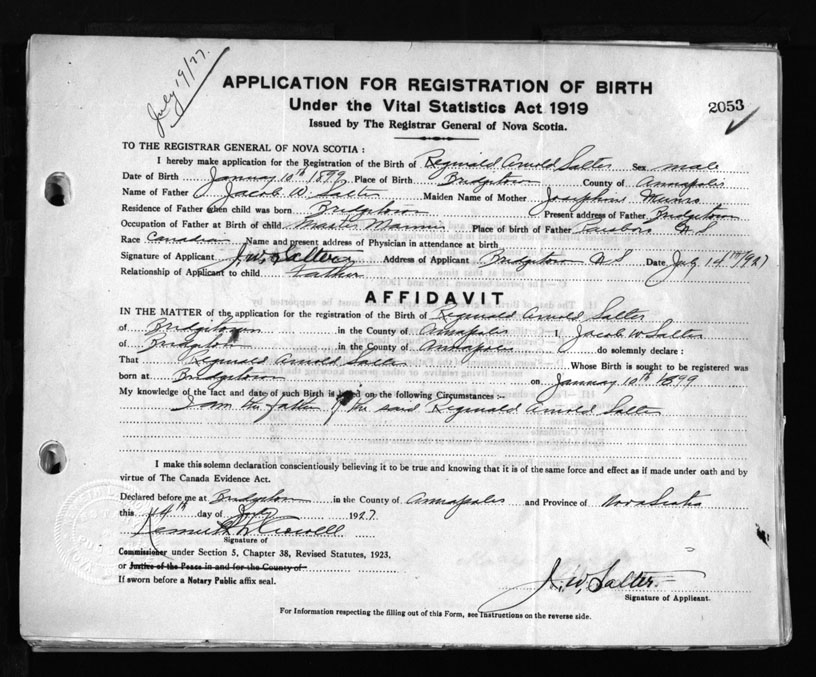 July 19/27.
APPLICATION FOR REGISTRATION OF BIRTH
Under the Vital Statistics Act 1919
2053
Issued by The Registrar General of Nova Scotia.
TO THE REGISTRAR GENERAL OF NOVA SCOTIA :
I hereby make application for the Registration of the Birth of Reginald Arnold Salter Sex male
Date of Birth January 10th 1899 Place of Birth Bridgetown County of Annapolis
Name of Father Jacob W. Salter Maiden Name of Mother Josephine Munro
Residence of Father when child was born Bridgetown Present address of Father Bridgetown
Occupation of Father at Birth of child Master Mariner Place of birth of Father N S
Race Canadian Name and present address of Physician in attendance at birth
Signature of Applicant J. W. Salter Address of Applicant Bridgetown N S Date July 14th 1927
Relationship of Applicant to child Father
AFFIDAVIT
IN THE MATTER of the application for the registration of the Birth of Reginald Arnold Salter
of Bridgetown in the County of Annapolis I, Jacob W. Salter
of Bridgetown in the County of Annapolis do solemnly declare :
That Reginald Arnold Salter Whose Birth is sought to be registered was
born at Bridgetown on January 10th 1899
My knowledge of the fact and date of such Birth is based on the following Circumstances :-
I am the father of the said Reginald Arnold Salter
I make this solemn declaration conscientiously believing it to be true and knowing that it is of the same force and effect as if made under oath and by
virtue of The Canada Evidence Act.
Declared before me at Bridgetown in the County of Annapolis and Province of Nova Scotia
this 14th day of July 1927
Signature of
Commissioner under Section 5, Chapter 38, Revised Statutes, 1923,
or Justice of the Peace in and for the County of
If sworn before a Notary Public affix seal.
J. W. Salter
Signature of Applicant.
For Information respecting the filling out of this Form, see Instructions on the reverse side.